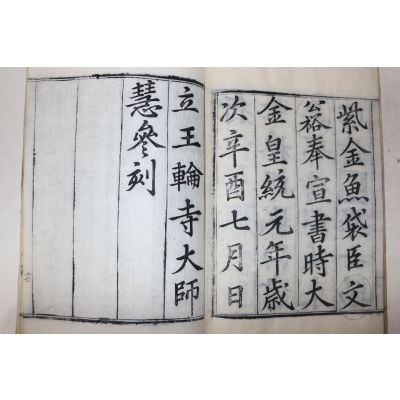 紫金魚袋臣文
裕奉宣書時大
金皇統元年歳
次辛酉七月日
立王輪寺大師
慧參刻